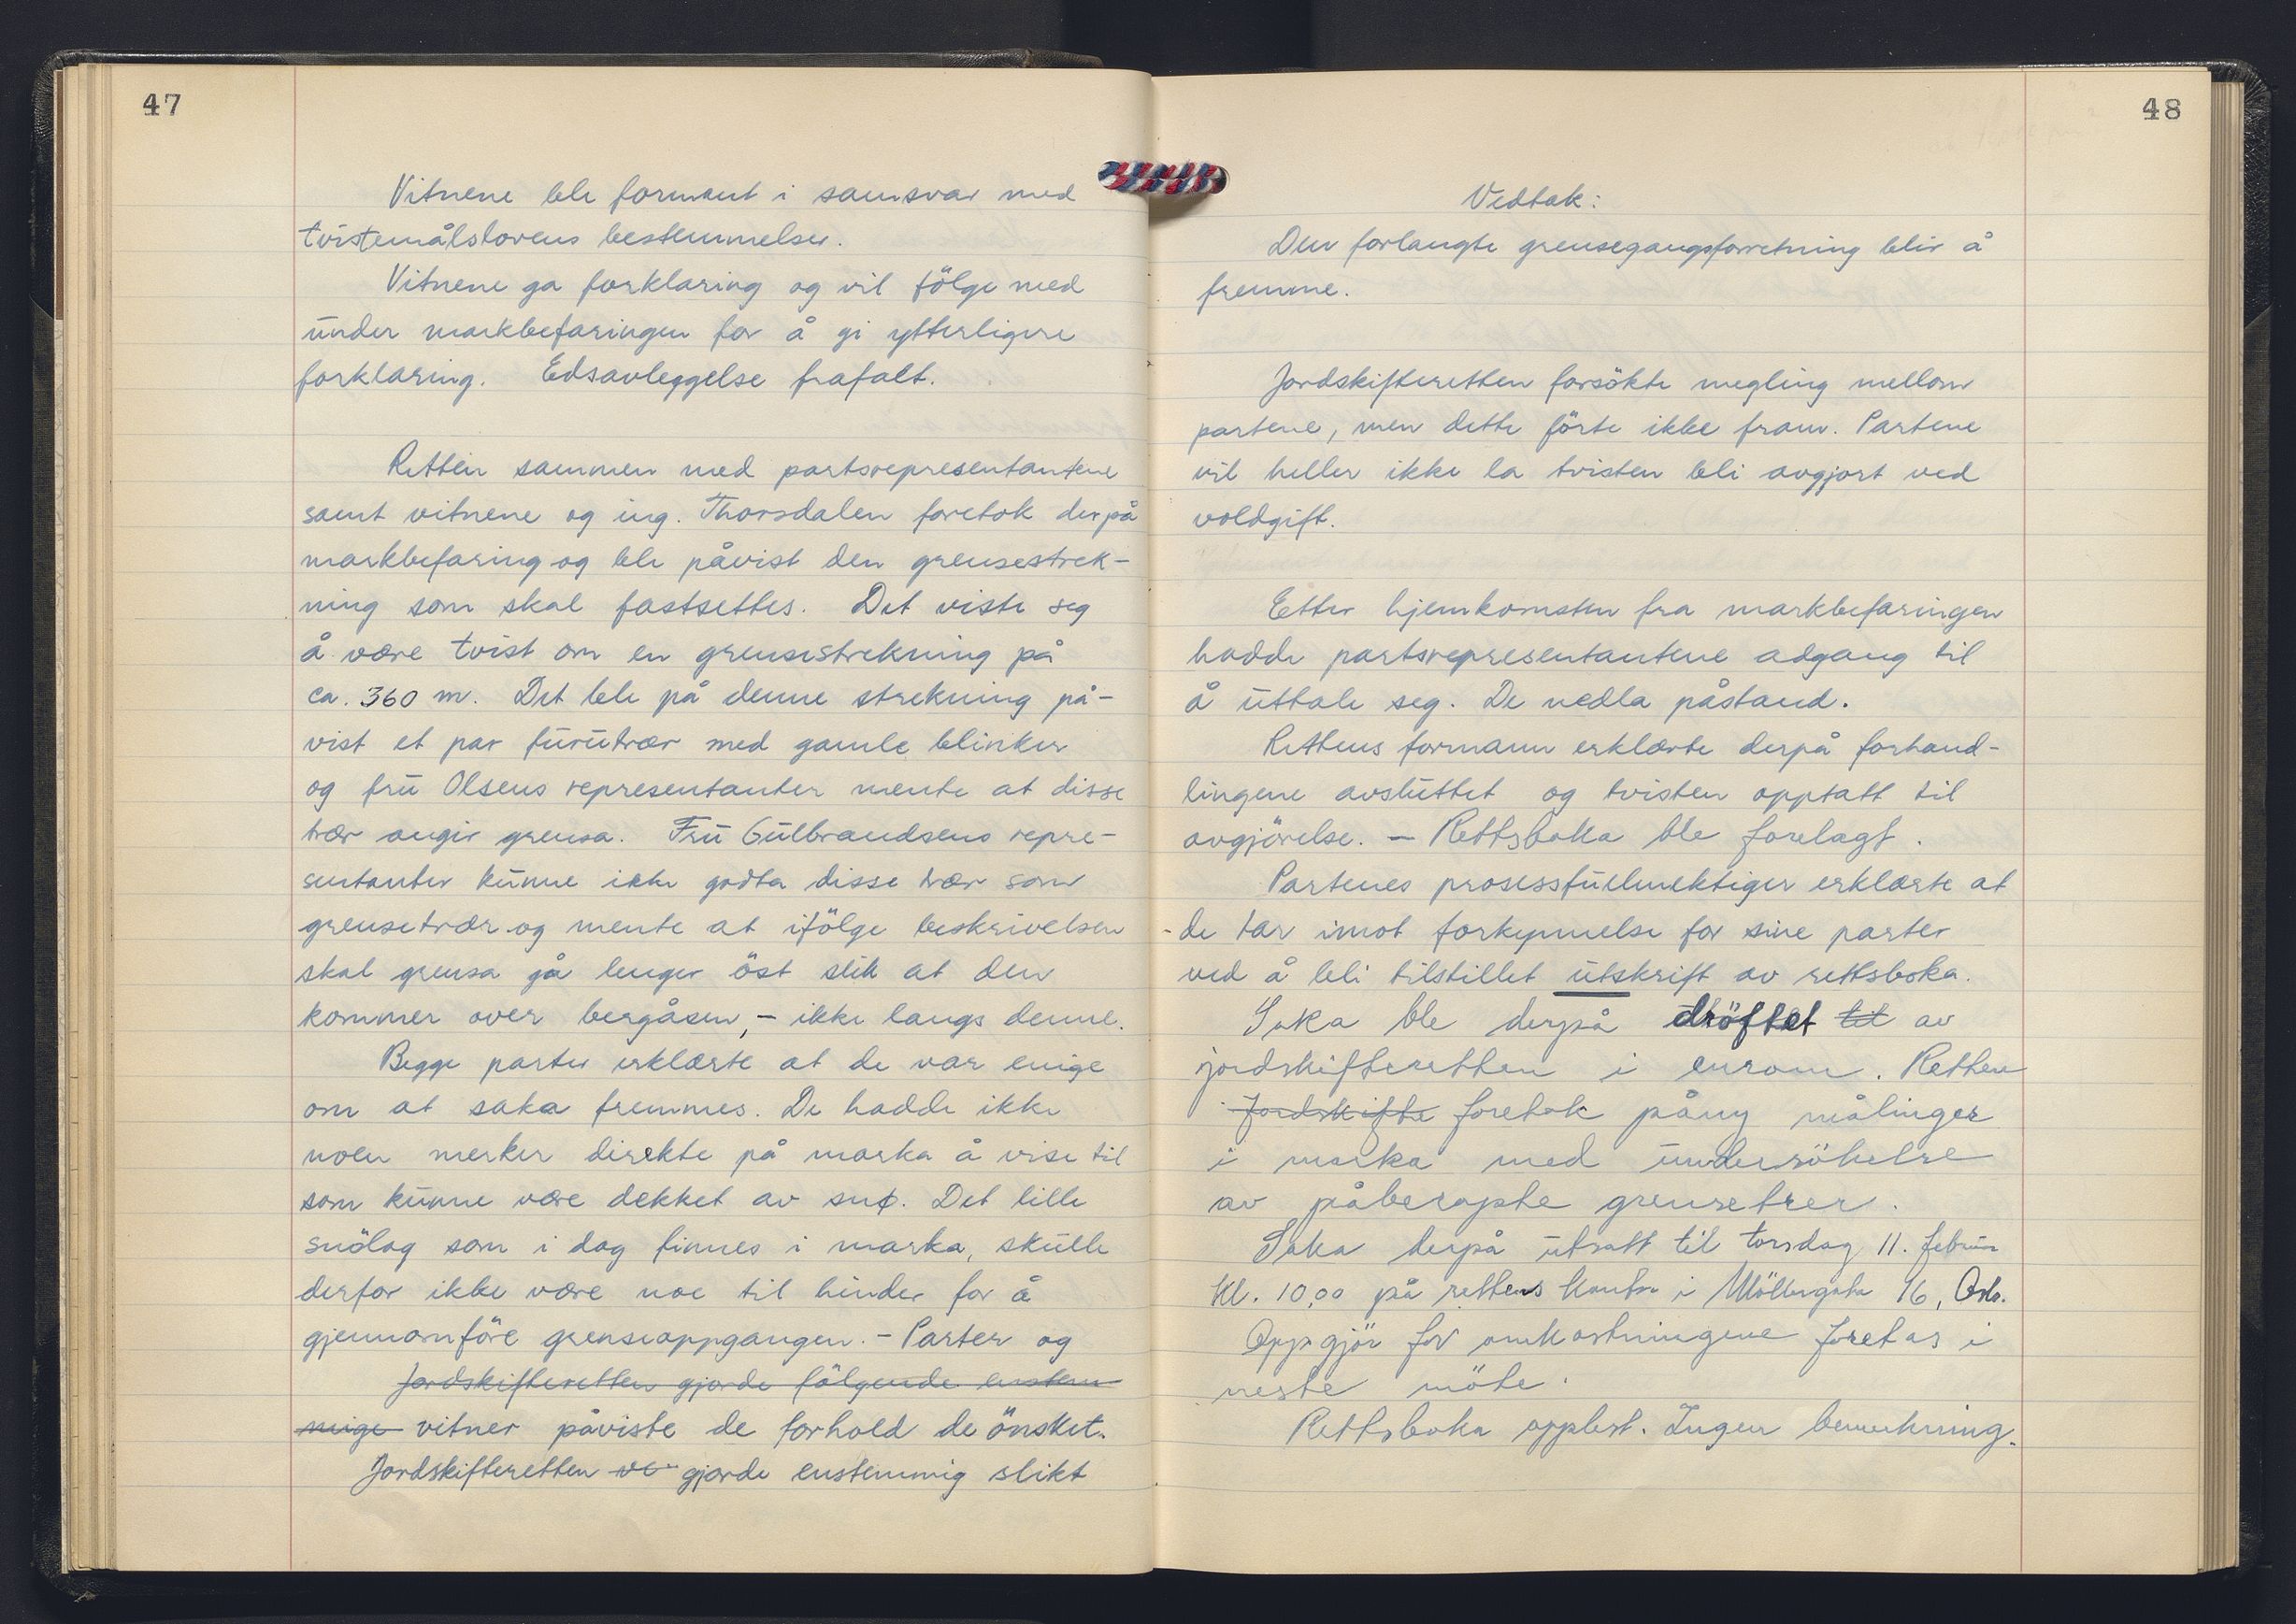 47
Vitnene ble formant i samsvar med
tvistemålslovens bestemmelser.
Vitnene ga forklaring og vil fölge med
under markbefaringen for å gi ytterligere
forklaring. Edsavleggelse frafalt.
Retten sammen med partsrepresentantene
samt vitnene og ing. Thorsdalen foretok derpå
markbefaring og ble påvist den grensestrek-
ning som skal fastsettes. Det viste seg
å være tvist om en grensestrekning på
ca. 360 m. Det ble på denne strekning på-
vist et par furutrær med gamle blinker
og fru Olsens representanter mente at disse
trær angir grensa. Fru Gulbrandsens repre-
sentanter kunne ikke godta disse trær som
grensetrær og mente at ifölge beskrivelsen
skal grensa gå lenger öst slik at den
kommer over bergåsen, - ikke langs denne.
Begge parter erklærte at de var enige
om at saka fremmes. De hadde ikke
noen merker direkte på marka å vise til
som kunne være dekket av snø. Det lille
snölag som i dag finnes i marka, skulle
derfor ikke være noe til hinder for å
gjennomföre grenseoppgangen. - Parter og
Jordskifteretten gjorde fölgende enstem
mige vitner påviste de forhold de önsket.
Jordskifteretten ve gjorde enstemmig slikt
48
Vedtak:
Den forlangte grensegangsforretning blir å
fremme.
Jordskifteretten forsökte megling mellom
partene, men dette förte ikke fram. Partene
vil heller ikke la tvisten bli avgjort ved
voldgift.
Etter hjemkomsten fra markbefaringen
hadde partsrepresentantene adgang til
å uttale seg. De nedla påstand.
Rettens formann erklærte derpå forhand-
lingene avsluttet og tvisten opptatt til
avgjörelse. - Rettsboka ble forelagt.
Partenes prosessfullmektiger erklærte at
de tar imot forkynnelse for sine parter
ved å bli tilstillet utskrift av rettsboka.
Saka ble derpå dröftet til av
jordskifteretten i enrom. Retten
Jordskifte foretok påny målinger
i marka med undersökelse
av påberopte grensetrer.
Saka derpå utsatt til torsdag 11. februar
kl. 10,00 på rettens kontor i Möllergata 16, Oslo.
Oppgjör for omkostningene foretas i
neste möte.
Rettsboka opplest. Ingen bemerkning.